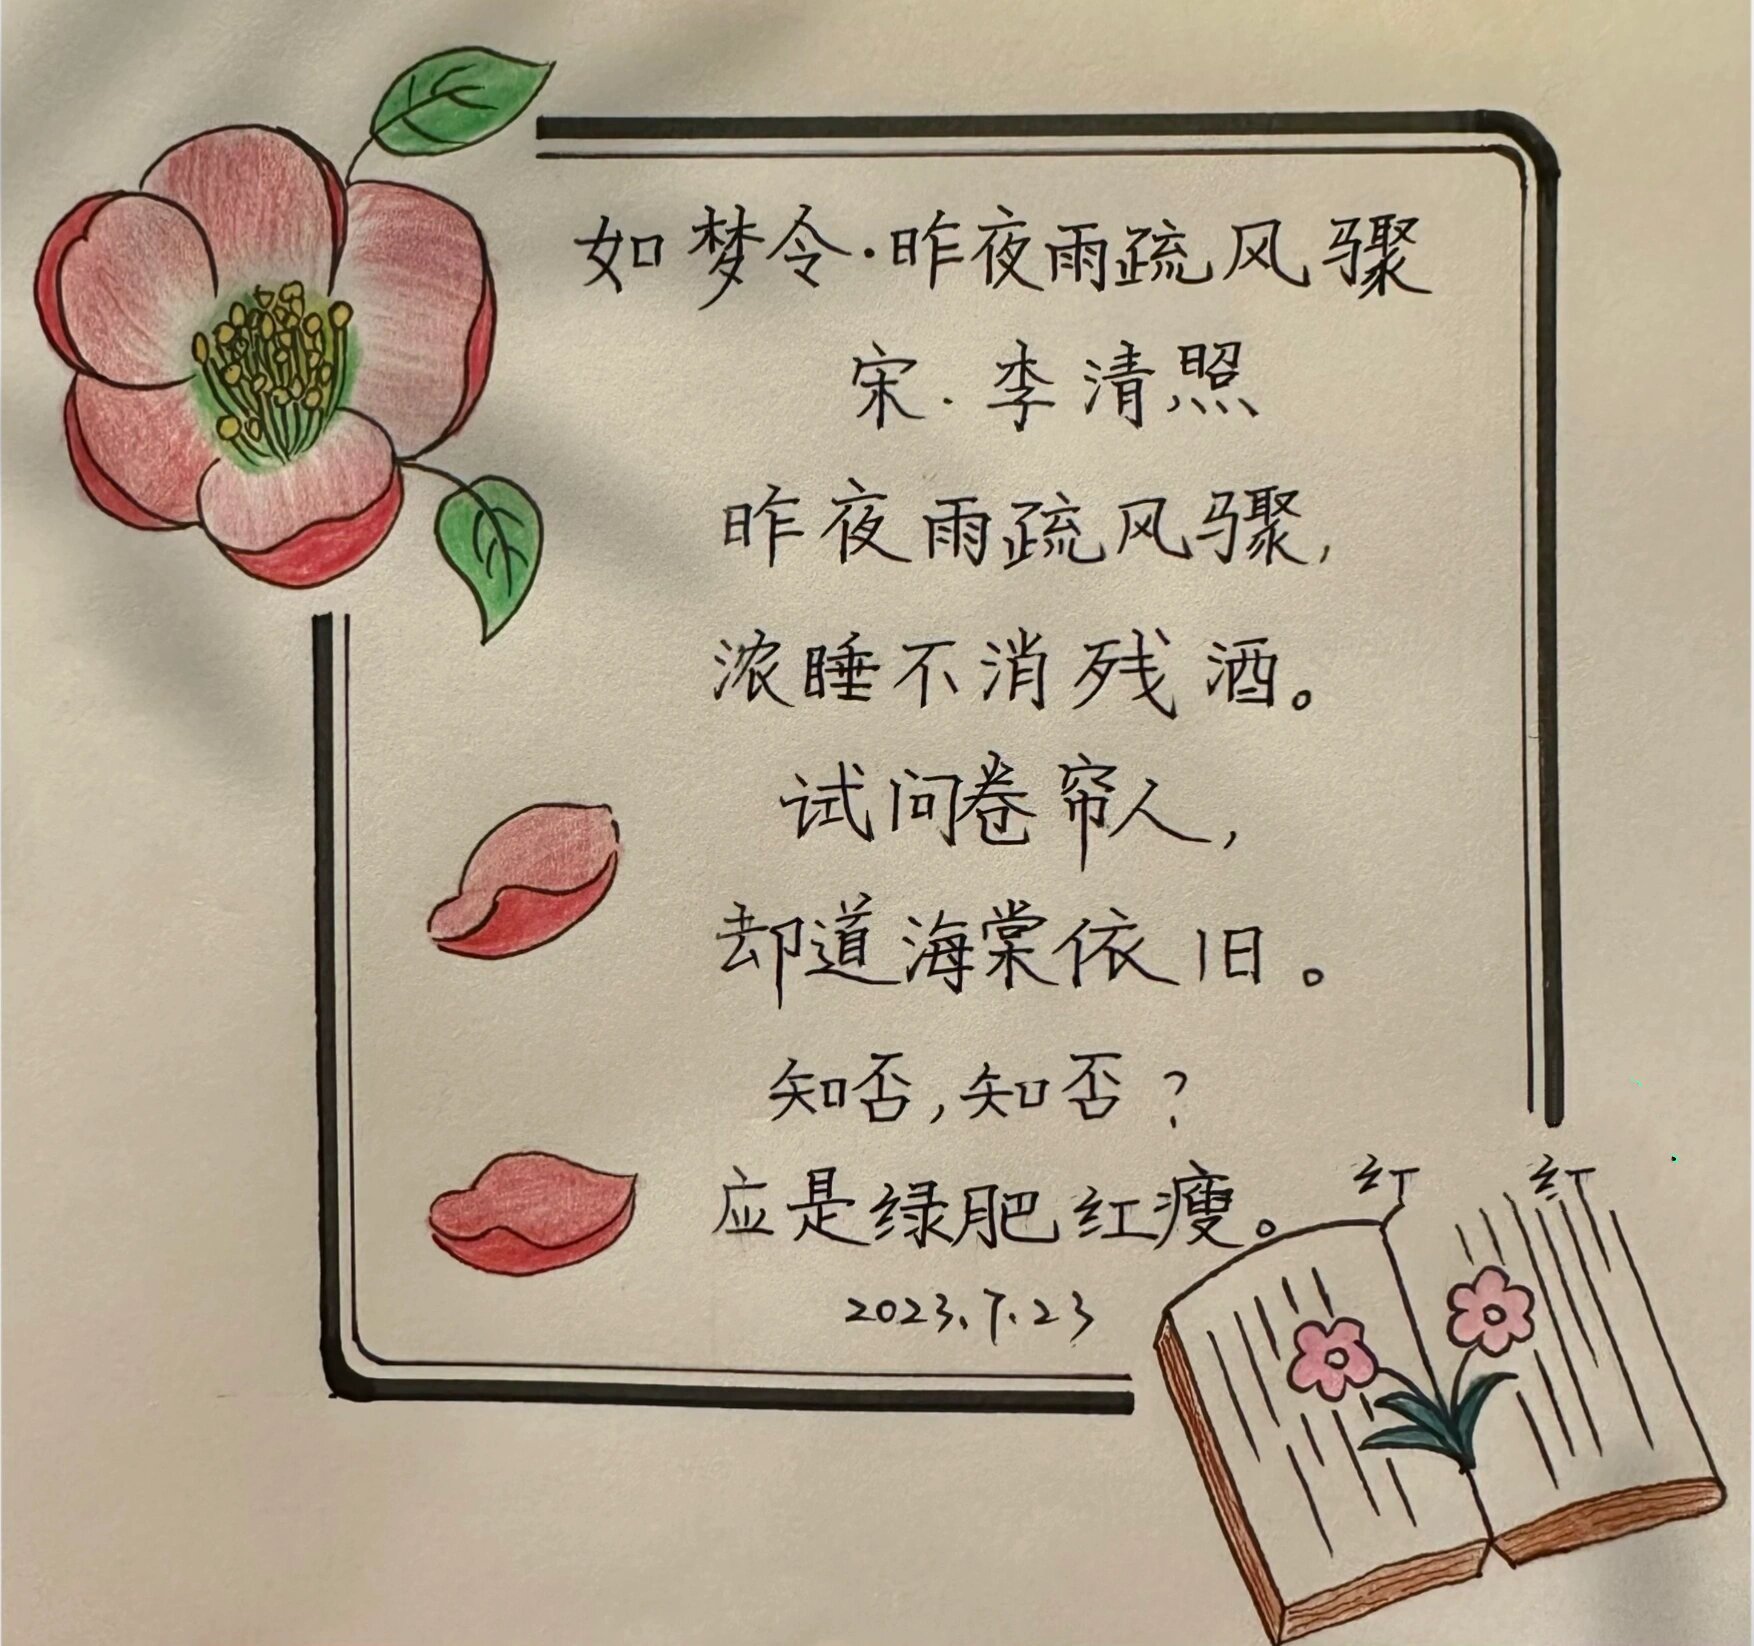 如梦令·昨夜雨疏风骤
宋·李清照
昨夜雨疏风骤,
浓睡不消残酒。
试问卷帘人,
却道海棠依旧。
知否,知否?
应是绿肥红瘦。
红 红
2023.7.23